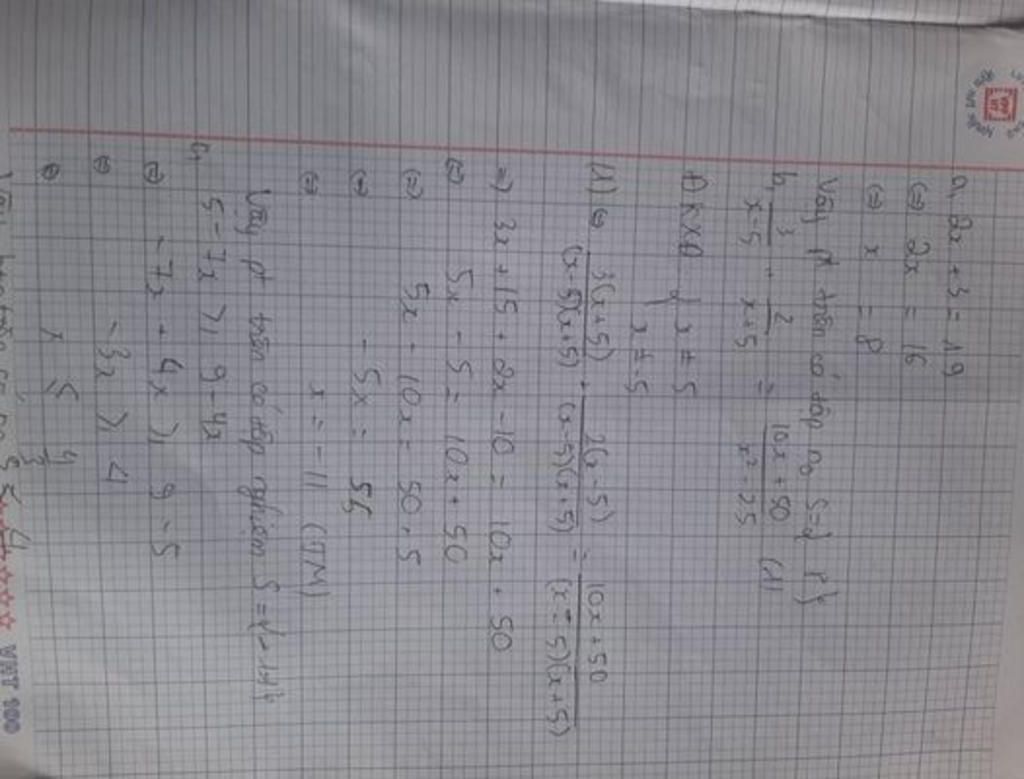 a, 2x + 3 = 19
(=) 2x = 16
(=) x = 8
Vậy pt trên có tập no S = { 8 }
b, 3/(x-5) + 2/(x+5) = (10x + 50)/(x² - 25) (1)
ĐKXĐ { x ≠ 5
x ≠ -5
(1) (=) 3(x+5)/((x-5)(x+5)) + 2(x-5)/((x-5)(x+5)) = (10x + 50)/((x-5)(x+5))
=) 3x + 15 + 2x - 10 = 10x + 50
(=) 5x - 5 = 10x + 50
(=) 5x - 10x = 50 + 5
(=) - 5x = 55
(=) x = -11 (TM)
Vậy pt trên có tập nghiệm S = {-11}
5 - 7x ≥ 9 - 4x
(=) - 7x + 4x ≥ 9 - 5
(=) -3x ≥ 4
(=) x ≤ 4/3
VNT 100